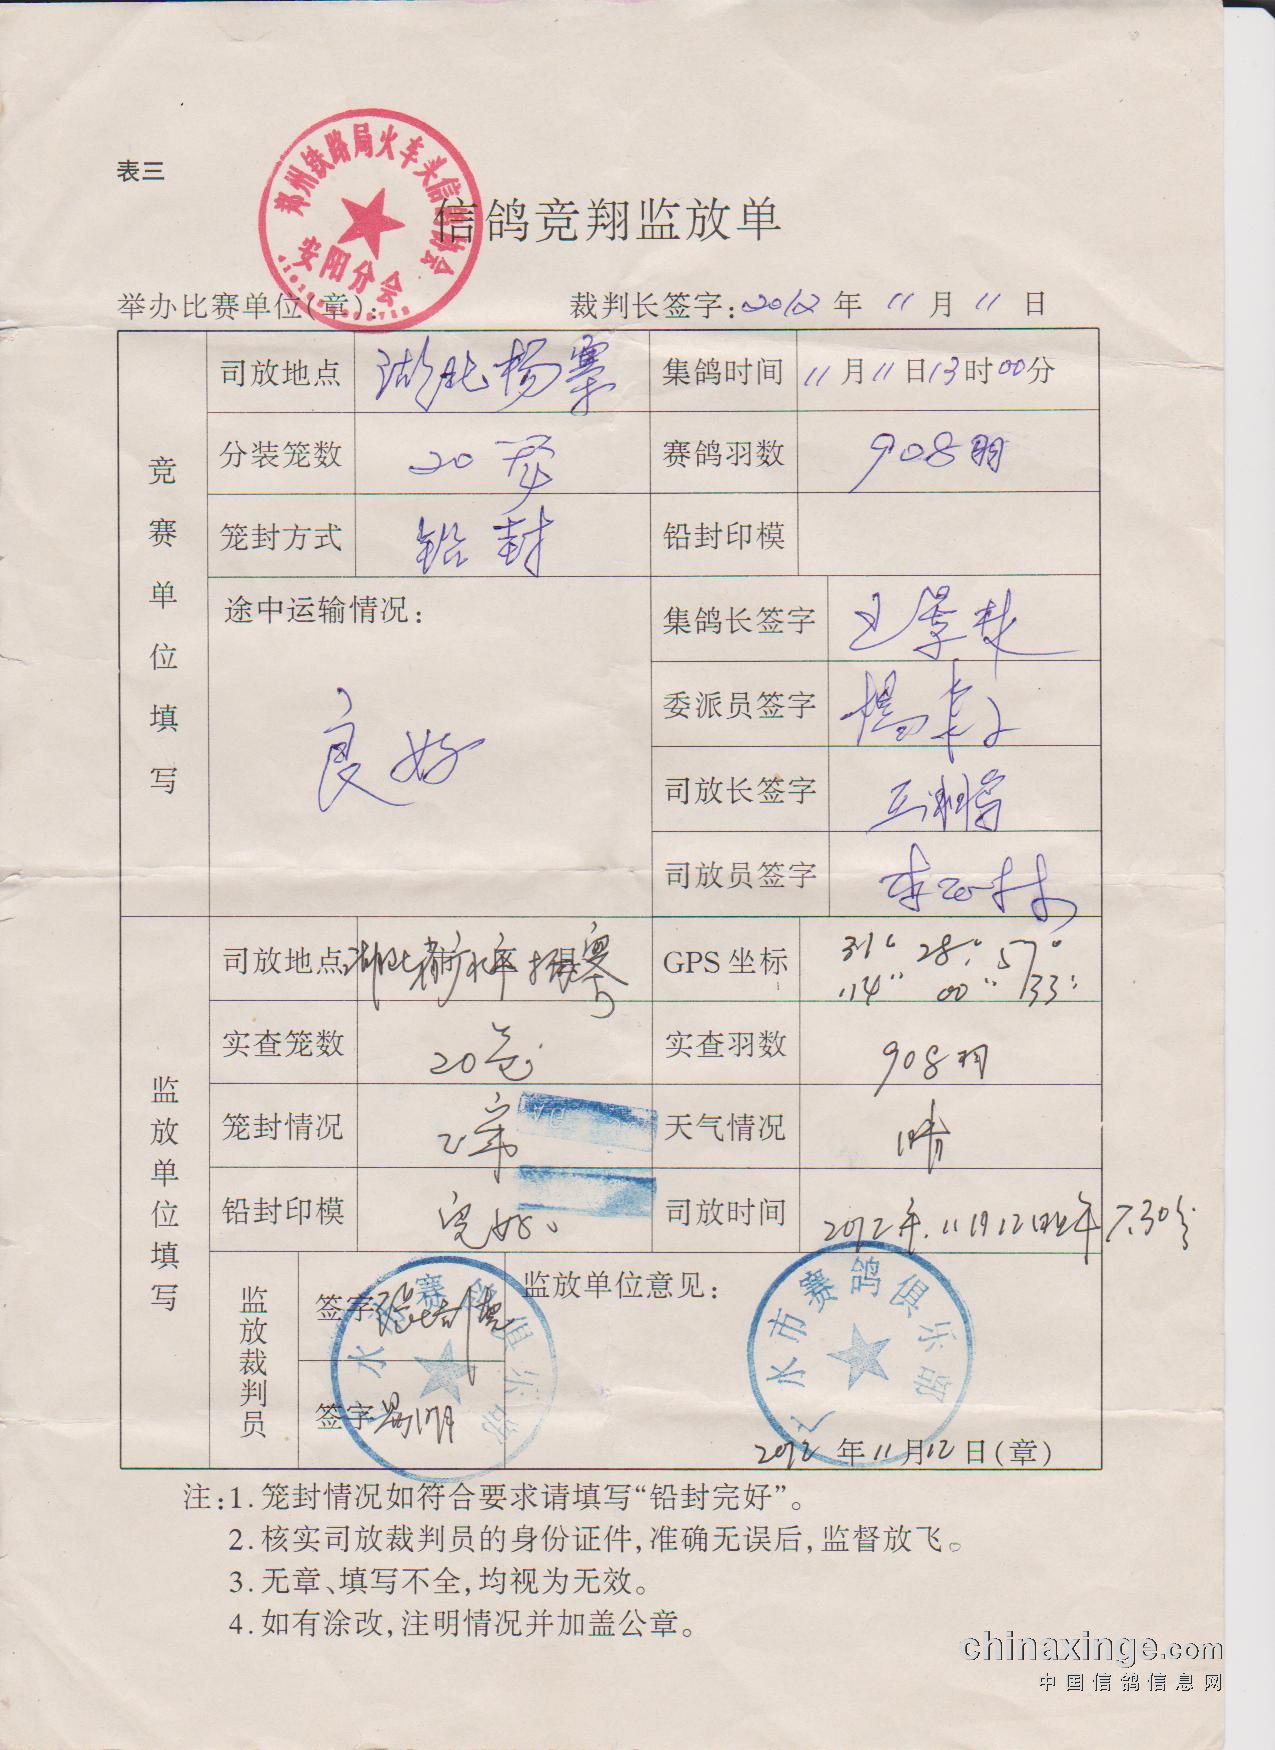 表三
郑州铁路局火车头信鸽协会
安阳分会
信鸽竞翔监放单
举办比赛单位(章): 裁判长签字: 2012 年 11 月 11 日
竞赛单位填写
司放地点 湖北杨寨 集鸽时间 11月11日13时00分
分装笼数 20 赛鸽羽数 908羽
笼封方式 铅封 铅封印模
途中运输情况: 良好
集鸽长签字
委派员签字
司放长签字
司放员签字
监放单位填写
司放地点 湖北 市 县 GPS坐标 31° 28' 57"
114° 00' 33"
实查笼数 20笼 实查羽数 908羽
笼封情况 天气情况 晴
铅封印模 完好 司放时间 2012年11月12日上午7.30分
监放裁判员 签字 监放单位意见:
签字
广水市赛鸽俱乐部
广水市赛鸽俱乐部
2012 年11月12日(章)
注:1.笼封情况如符合要求请填写“铅封完好”。
2.核实司放裁判员的身份证件,准确无误后,监督放飞。
3.无章、填写不全,均视为无效。
4.如有涂改,注明情况并加盖公章。
chinaxinge.com
中国信鸽信息网